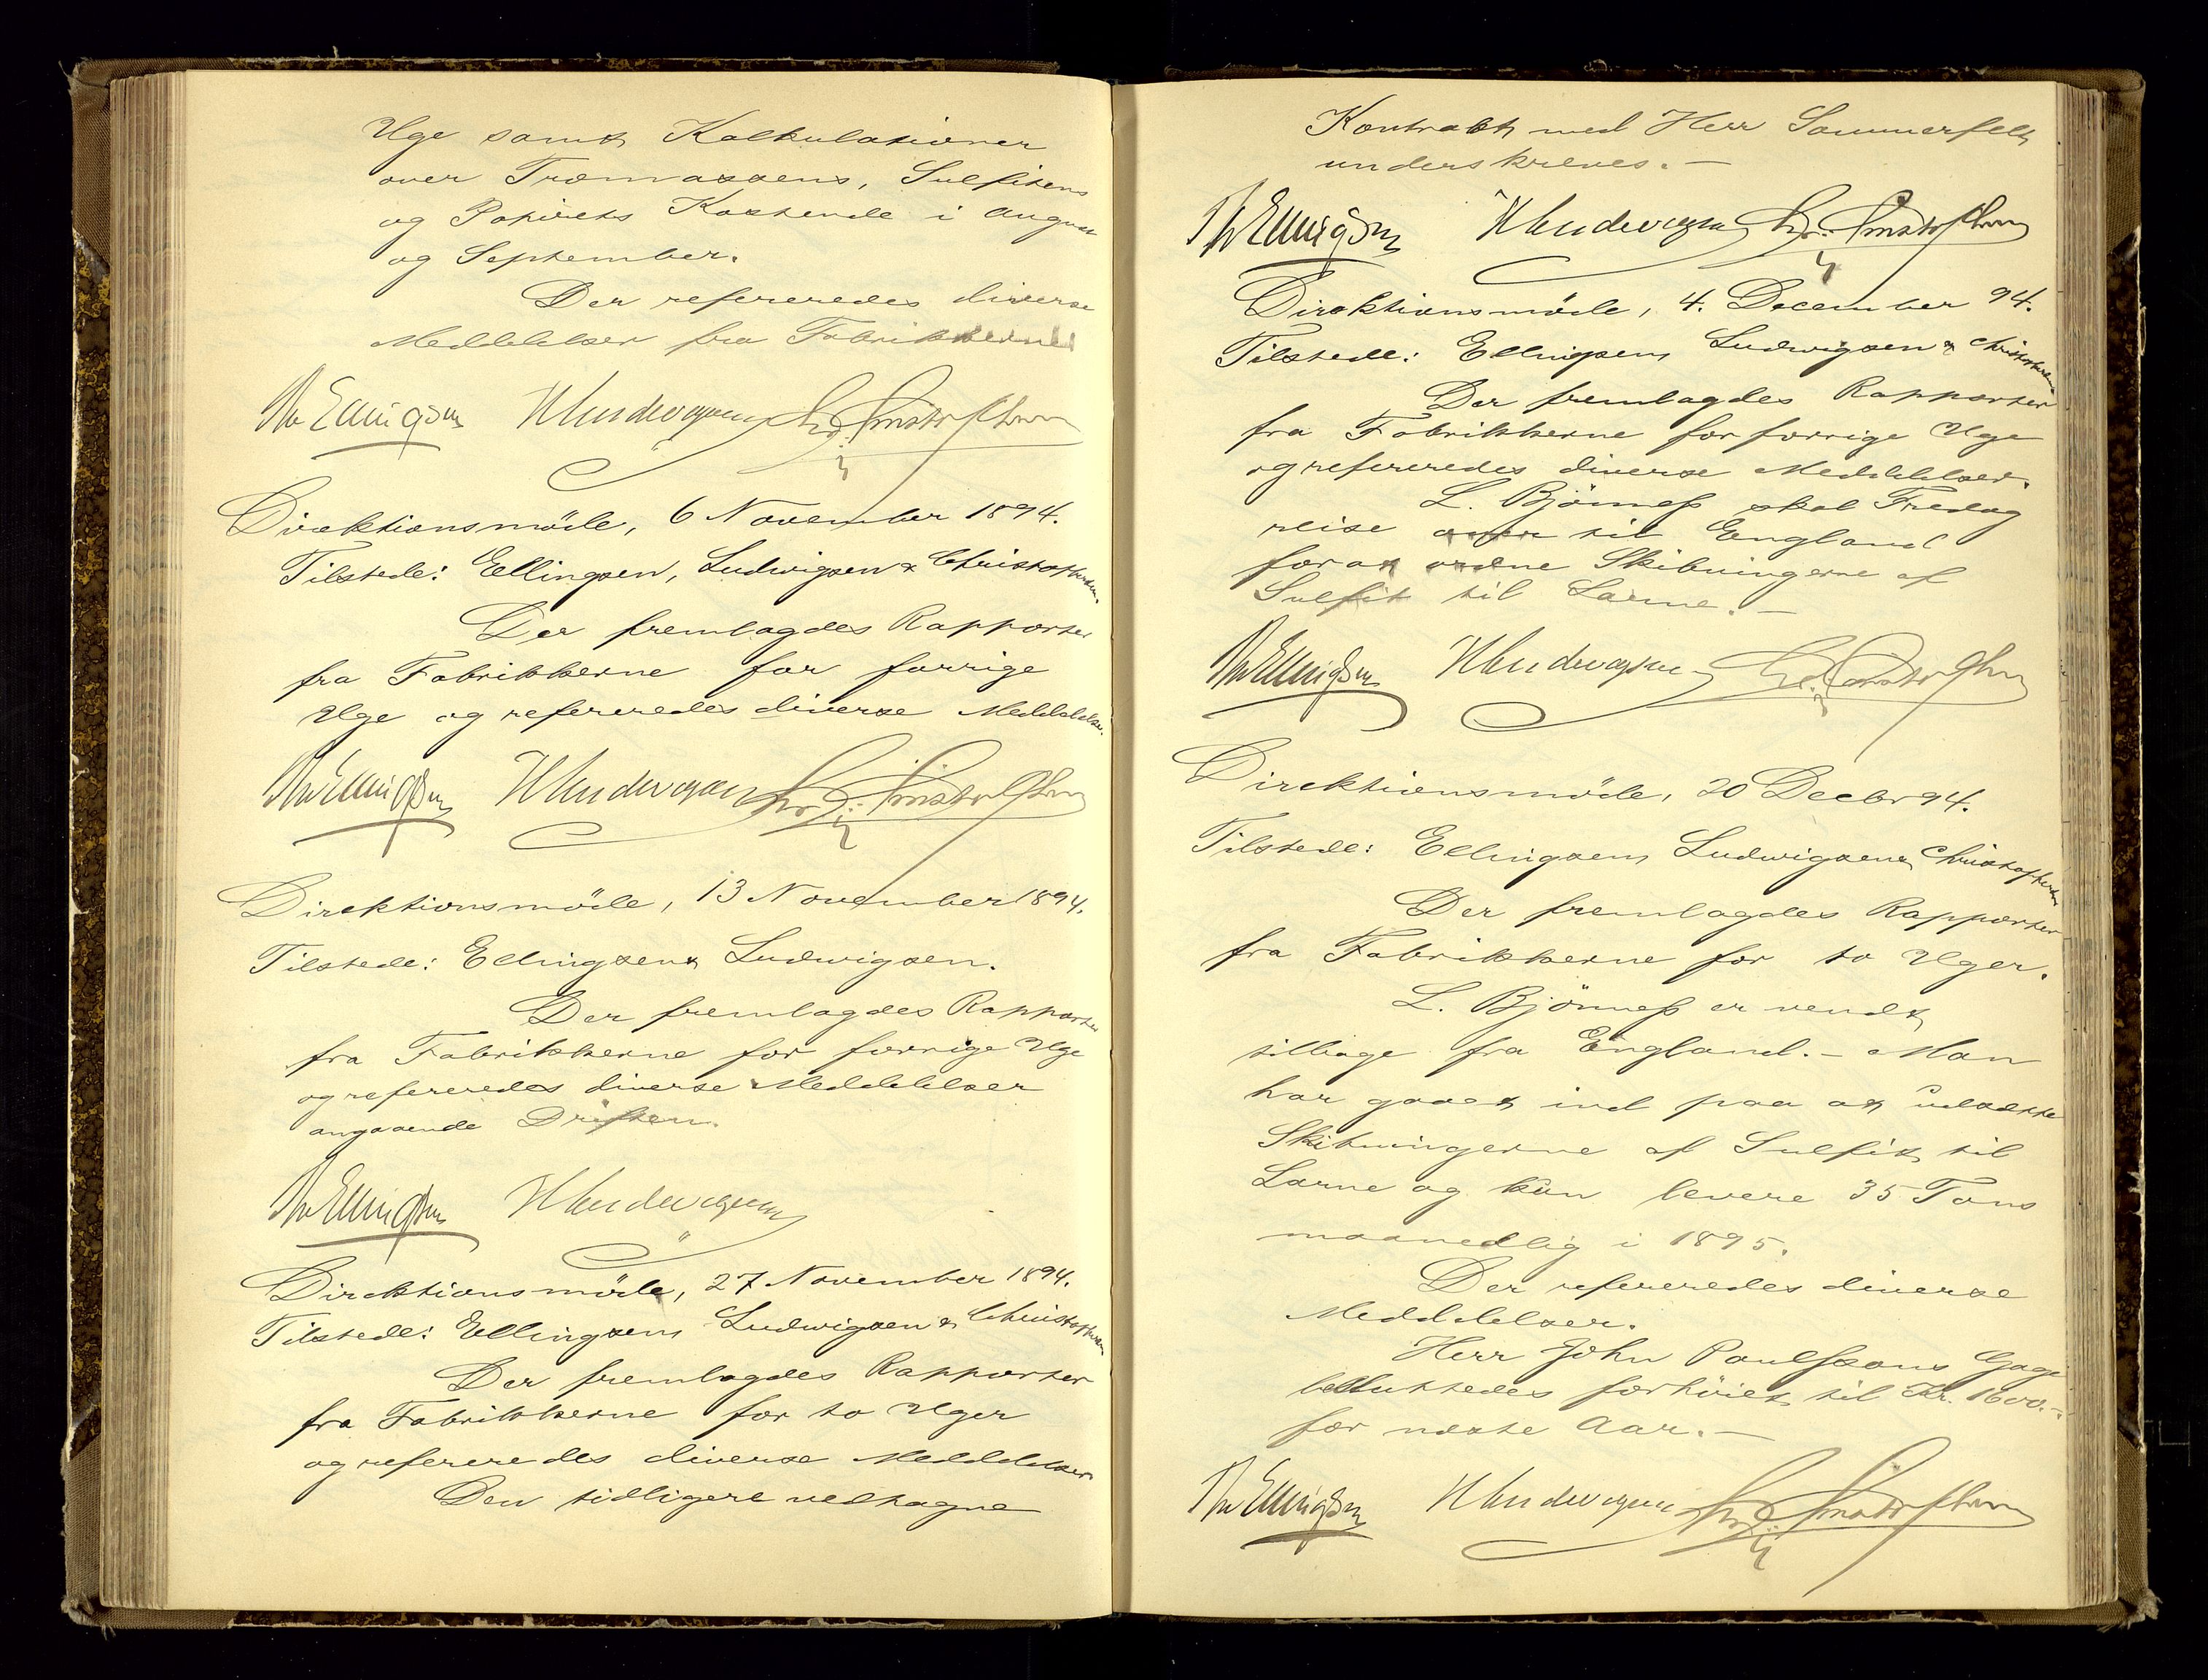 Uge samt Kalkulationer
over Træmassens, Sulfitens
og Papirets Kostende i August
og September.
Der refereredes diverse
Meddelelser fra Fabrikkerne
Th Ellingsen H Ludwigsen Chr. Christophersen
Direktionsmöde, 6 November 1894.
Tilstede: Ellingsen, Ludwigsen & Christophersen.
Der fremlagdes Rapporter
fra Fabrikkerne for forrige
Uge og refereredes diverse Meddelelser.
Th Ellingsen H Ludwigsen Chr. Christophersen
Direktionsmöde, 13 November 1894.
Tilstede: Ellingsen & Ludwigsen.
Der fremlagdes Rapporter
fra Fabrikkerne for forrige Uge
og refereredes diverse Meddelelser
angaaende Driften.
Th Ellingsen H Ludwigsen
Direktionsmöde, 27 November 1894.
Tilstede: Ellingsen, Ludwigsen & Christophersen
Der fremlagdes Rapporter
fra Fabrikkerne for to Uger
og refereredes diverse Meddelelser
Den tidligere vedtagne
Kontrakt med Herr Sommerfelt
underskreves. —
Th Ellingsen H Ludwigsen Chr. Christophersen
Direktionsmöde, 4. December 94.
Tilstede: Ellingsen, Ludwigsen & Christophersen
Der fremlagdes Rapporter
fra Fabrikkerne for forrige Uge
og refereredes diverse Meddelelser.
L. Björneß skal Fredag
reise over til England
for at ordne Skibningerne af
Sulfit til Larne. —
Th Ellingsen H Ludwigsen Chr. Christophersen
Direktionsmöde, 20 Decbr 94.
Tilstede: Ellingsen, Ludwigsen & Christophersen
Der fremlagdes Rapporter
fra Fabrikkerne for to Uger.
L. Björneß er vendt
tilbage fra England. — Man
har gaaet ind paa at udsætte
Skibningerne af Sulfit til
Larne og kun levere 35 Tons
maanedlig i 1895.
Der refereredes diverse
Meddelelser.
Herr John Paulssons Gage
besluttedes forhöiet til Kr. 1600.—
for næste Aar. —
Th Ellingsen H Ludwigsen Chr. Christophersen